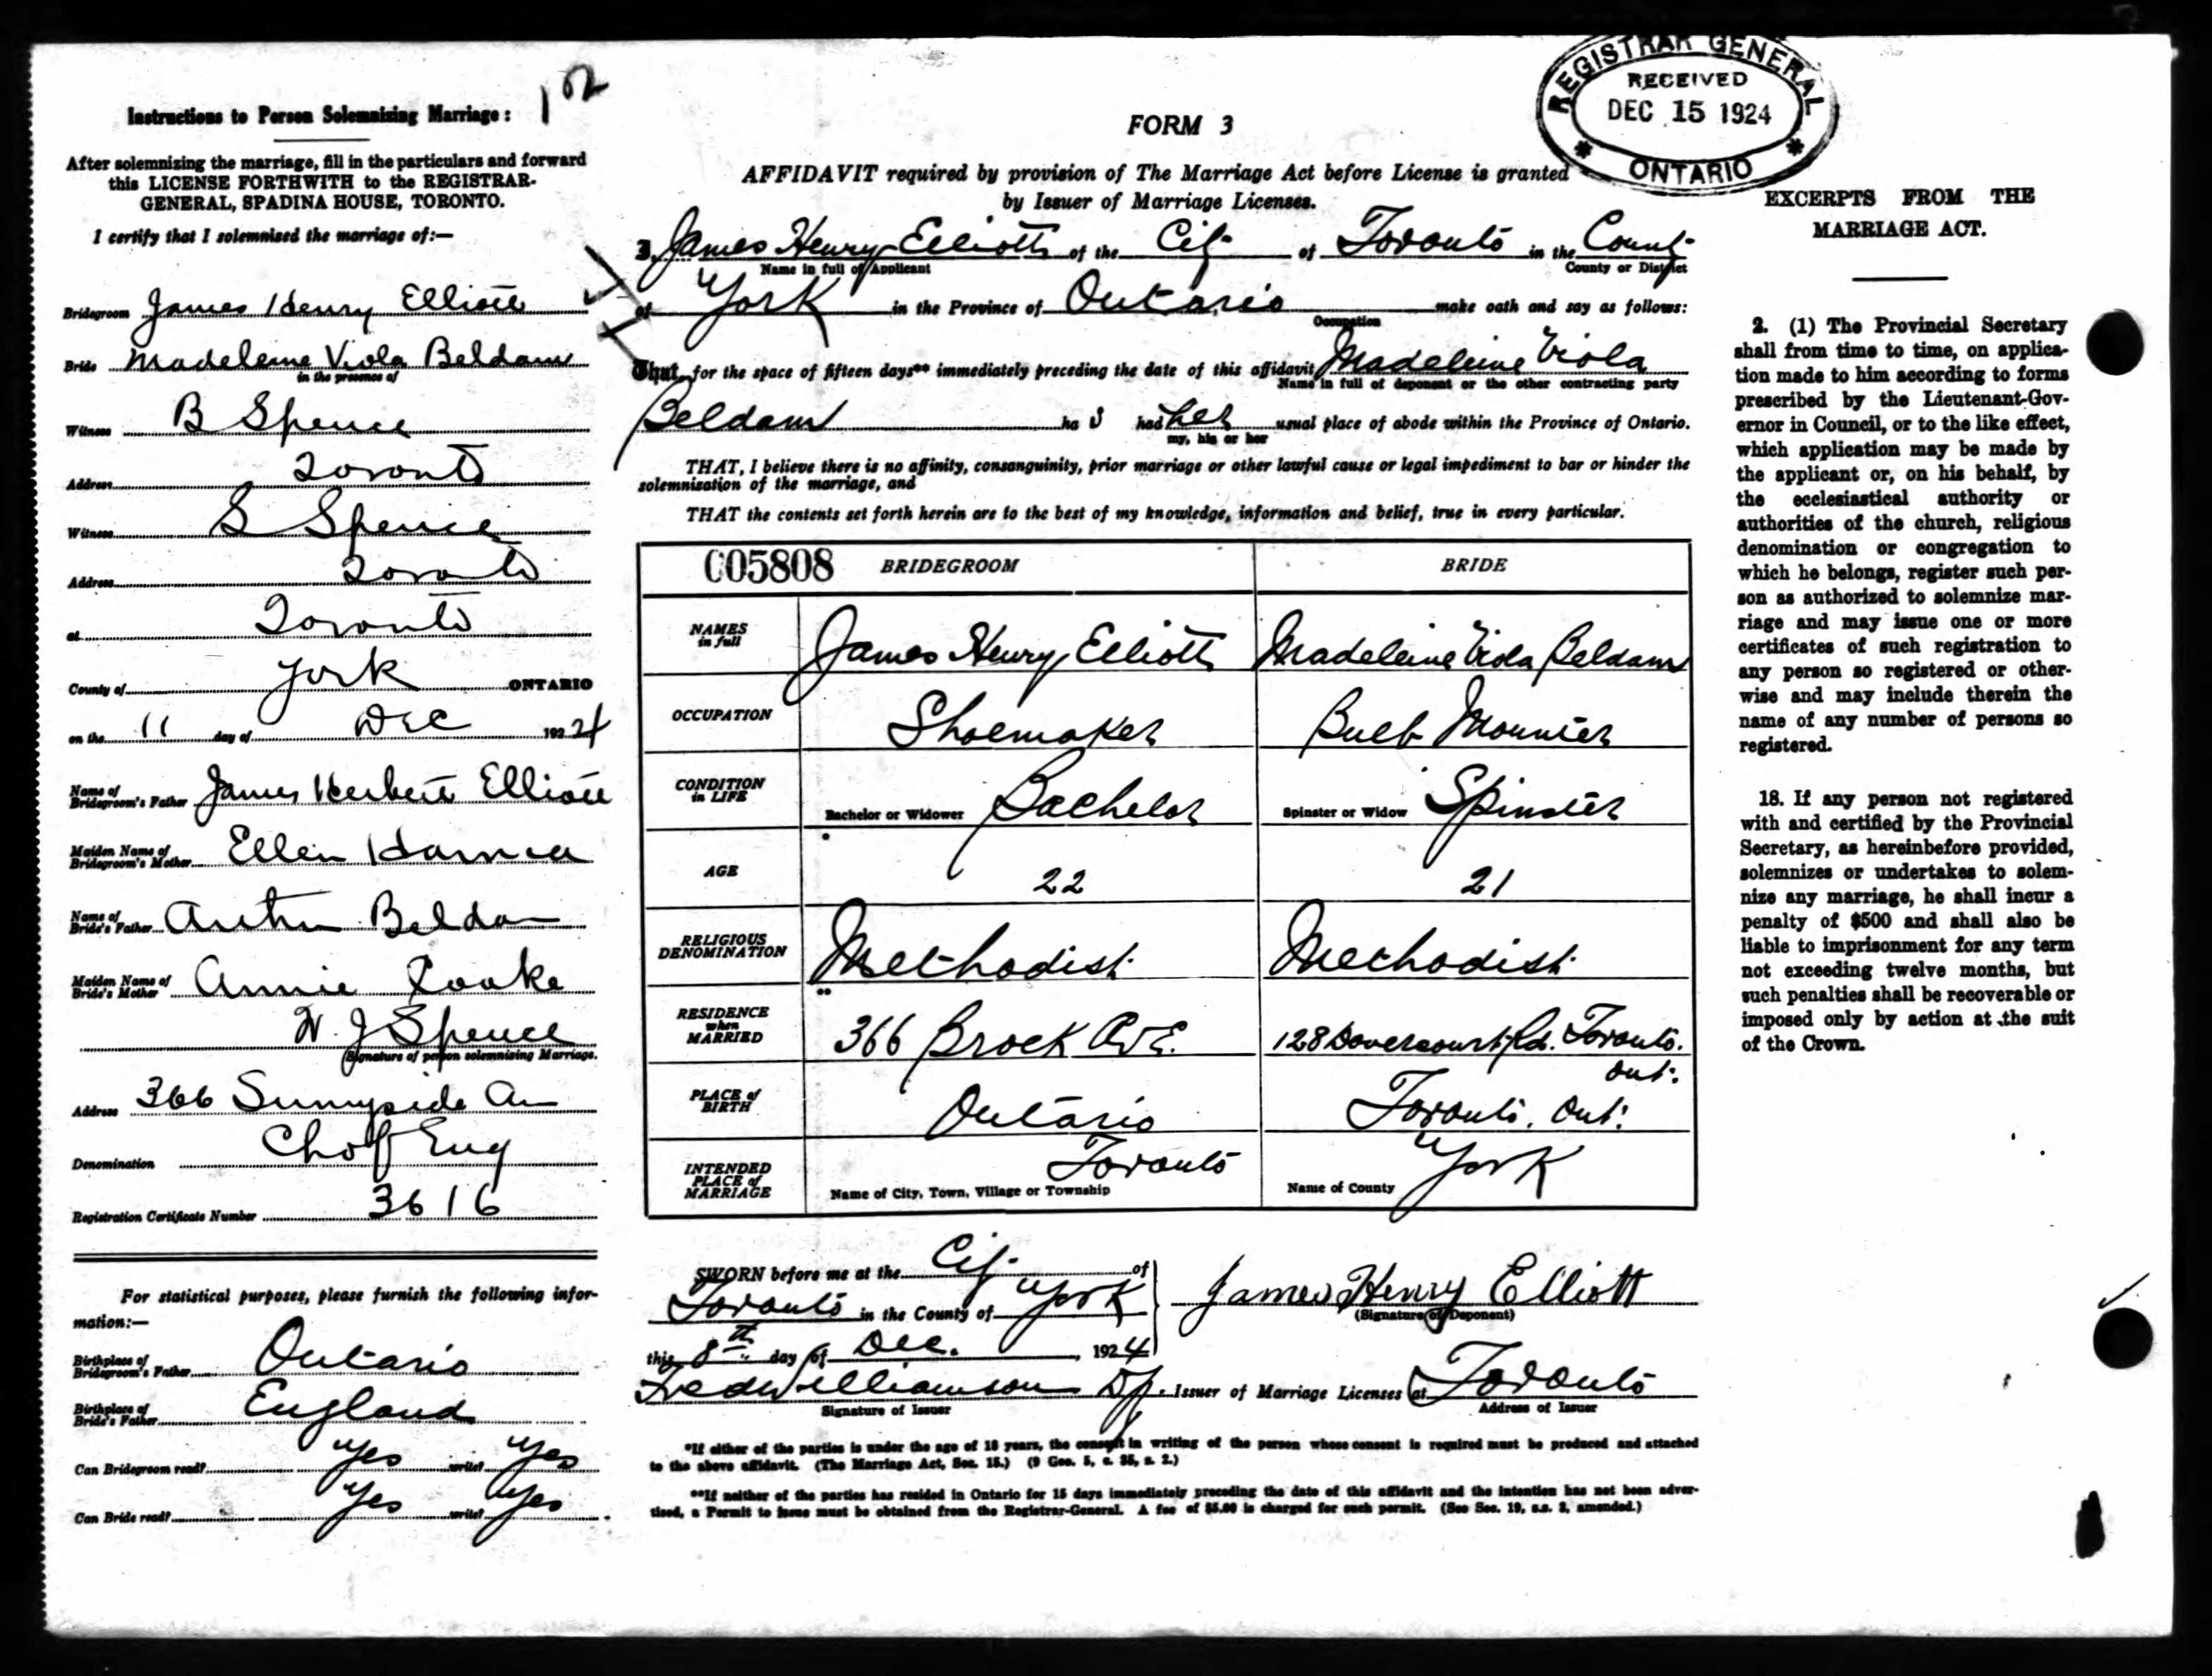 Instructions to Person Solemnizing Marriage:
After solemnizing the marriage, fill in the particulars and forward
this LICENSE FORTHWITH to the REGISTRAR-
GENERAL, SPADINA HOUSE, TORONTO.
I certify that I solemnised the marriage of:—
Bridegroom James Henry Elliott
Bride Madeleine Viola Beldam
in the presence of
Witness B Spence
Address Toronto
Witness S Spence
Address Toronto
at Toronto
County of York ONTARIO
on the 11 day of Dec 1924
Name of
Bridegroom's Father James Herbert Elliott
Maiden Name of
Bridegroom's Mother Ellen
Name of
Bride's Father Arthur Beldam
Maiden Name of
Bride's Mother Annie
W. J Spence
(Signature of person solemnizing Marriage.
Address 366 Sunnyside Av
Denomination Ch of Eng
Registration Certificate Number 3616
For statistical purposes, please furnish the following infor-
mation:—
Birthplace of
Bridegroom's Father Ontario
Birthplace of
Bride's Father England
Can Bridegroom read? Yes write? Yes
Can Bride read? Yes write? Yes
REGISTRAR GENERAL
RECEIVED
DEC 15 1924
ONTARIO
FORM 3
AFFIDAVIT required by provision of The Marriage Act before License is granted
by Issuer of Marriage Licenses.
James Henry Elliott of the City of Toronto in the County
Name in full of Applicant County or District
of York in the Province of Ontario make oath and say as follows:
Occupation
That, for the space of fifteen days** immediately preceding the date of this affidavit Madeleine Viola
Name in full of deponent or the other contracting party
Beldam ha s had her usual place of abode within the Province of Ontario.
my, his or her
THAT, I believe there is no affinity, consanguinity, prior marriage or other lawful cause or legal impediment to bar or hinder the
solemnization of the marriage, and
THAT the contents set forth herein are to the best of my knowledge, information and belief, true in every particular.
C05808 BRIDEGROOM BRIDE
NAMES
in full James Henry Elliott Madeleine Viola Beldam
OCCUPATION Shoemaker Bulb Mounter
CONDITION
in LIFE Bachelor or Widower Bachelor Spinster or Widow Spinster
AGE 22 21
RELIGIOUS
DENOMINATION Methodist Methodist
RESIDENCE
when
MARRIED 366 Brock Ave. 128 Dovercourt Rd. Toronto.
Ont.
PLACE of
BIRTH Ontario Toronto. Ont.
INTENDED
PLACE of
MARRIAGE Name of City, Town, Village or Township Toronto Name of County York
SWORN before me at the City of
Toronto in the County of York
this 8th day of Dec. 1924
James Henry Elliott
(Signature of Deponent)
Fred Williamson Issuer of Marriage Licenses at Toronto
Signature of Issuer Address of Issuer
*If either of the parties is under the age of 18 years, the consent in writing of the person whose consent is required must be produced and attached
to the above affidavit. (The Marriage Act, Sec. 15.) (9 Geo. 5, c. 35, s. 2.)
**If neither of the parties has resided in Ontario for 15 days immediately preceding the date of this affidavit and the intention has not been adver-
tised, a Permit to issue must be obtained from the Registrar-General. A fee of $5.00 is charged for such permit. (See Sec. 19, s.s. 3, amended.)
EXCERPTS FROM THE
MARRIAGE ACT.
2. (1) The Provincial Secretary
shall from time to time, on applica-
tion made to him according to forms
prescribed by the Lieutenant-Gov-
ernor in Council, or to the like effect,
which application may be made by
the applicant or, on his behalf, by
the ecclesiastical authority or
authorities of the church, religious
denomination or congregation to
which he belongs, register such per-
son as authorized to solemnize mar-
riage and may issue one or more
certificates of such registration to
any person so registered or other-
wise and may include therein the
name of any number of persons so
registered.
18. If any person not registered
with and certified by the Provincial
Secretary, as hereinbefore provided,
solemnizes or undertakes to solem-
nize any marriage, he shall incur a
penalty of $500 and shall also be
liable to imprisonment for any term
not exceeding twelve months, but
such penalties shall be recoverable or
imposed only by action at the suit
of the Crown.